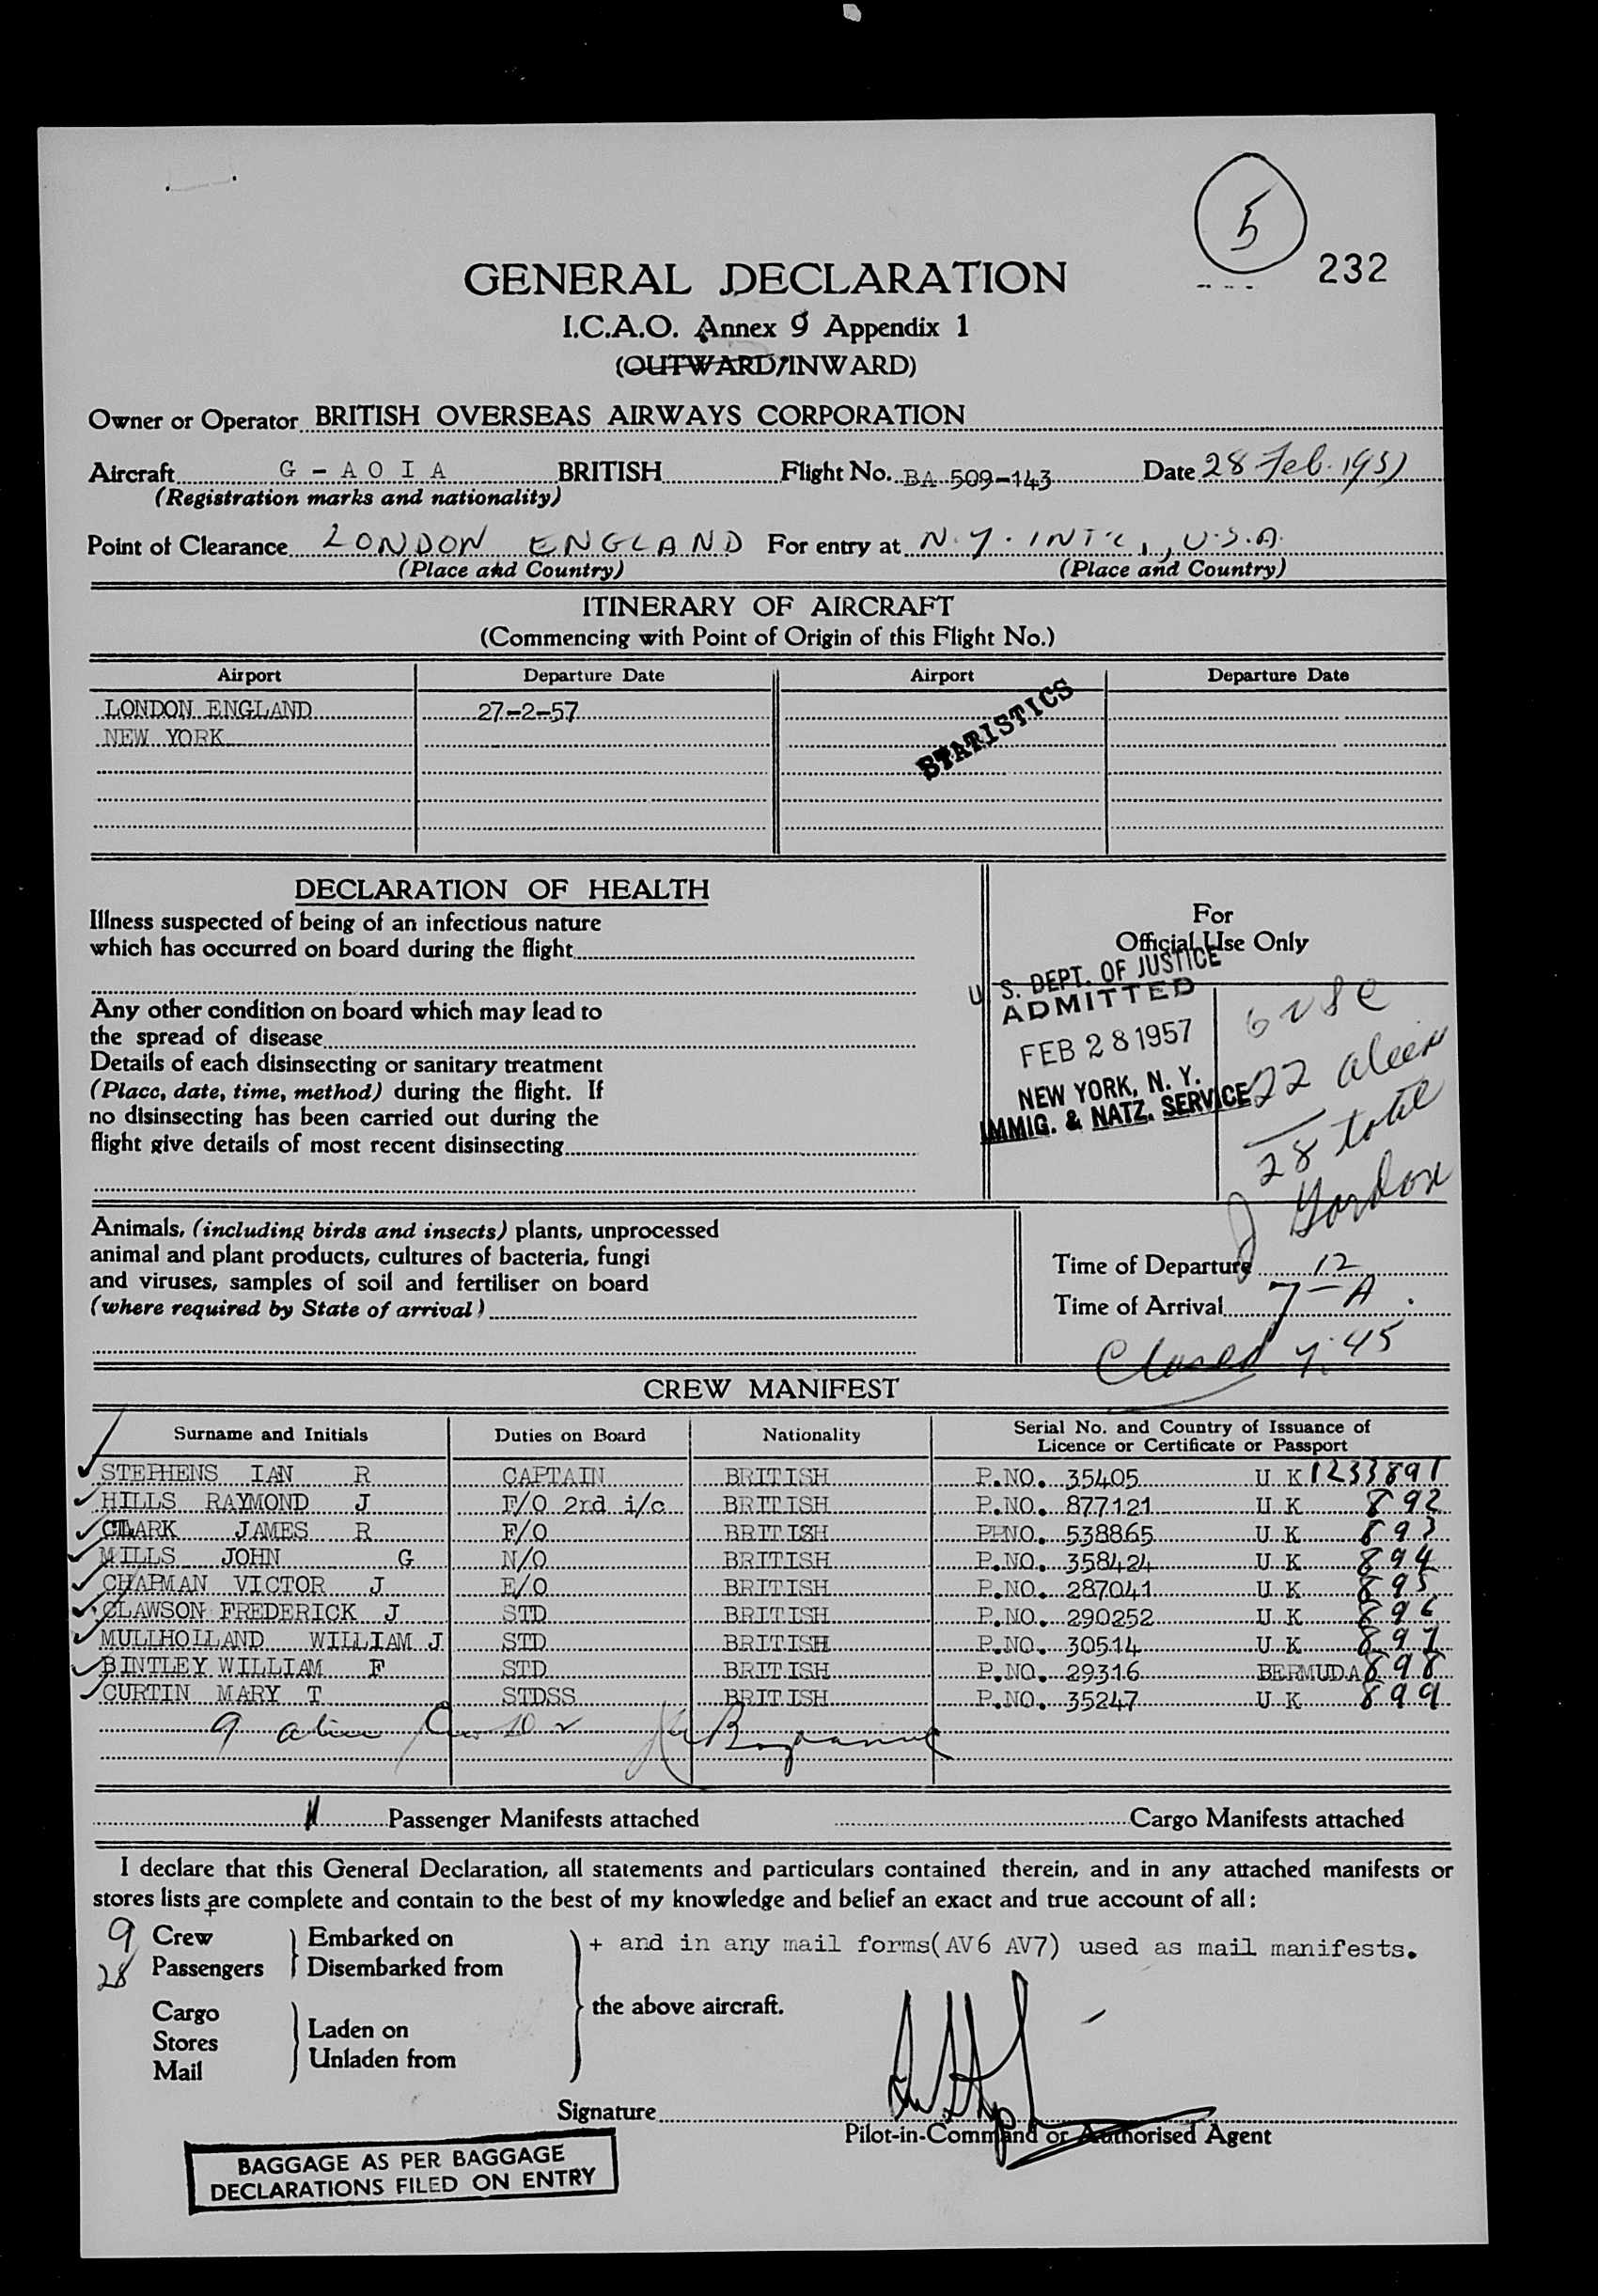 5
232
GENERAL DECLARATION
I.C.A.O. Annex 9 Appendix 1
(OUTWARD/INWARD)
Owner or Operator BRITISH OVERSEAS AIRWAYS CORPORATION
Aircraft G - A O I A BRITISH Flight No. BA 509-143 Date 28 Feb. 1957
(Registration marks and nationality)
Point of Clearance LONDON ENGLAND For entry at N.Y. INT'L, U.S.A.
(Place and Country) (Place and Country)
ITINERARY OF AIRCRAFT
(Commencing with Point of Origin of this Flight No.)
Airport Departure Date Airport Departure Date
LONDON ENGLAND 27-2-57
NEW YORK
STATISTICS
DECLARATION OF HEALTH
Illness suspected of being of an infectious nature
which has occurred on board during the flight
Any other condition on board which may lead to
the spread of disease
Details of each disinsecting or sanitary treatment
(Place, date, time, method) during the flight. If
no disinsecting has been carried out during the
flight give details of most recent disinsecting
For
Official Use Only
U. S. DEPT. OF JUSTICE
ADMITTED
FEB 28 1957
NEW YORK, N. Y.
IMMIG. & NATZ. SERVICE
6 USC
22 alien
28 total
J Gordon
Animals, (including birds and insects) plants, unprocessed
animal and plant products, cultures of bacteria, fungi
and viruses, samples of soil and fertiliser on board
(where required by State of arrival)
Time of Departure 12
Time of Arrival 7-A.
Closed 7:45
CREW MANIFEST
Surname and Initials Duties on Board Nationality Serial No. and Country of Issuance of
Licence or Certificate or Passport
STEPHENS IAN R CAPTAIN BRITISH P.NO. 35405 U K 1233891
HILLS RAYMOND J F/O 2nd i/c BRITISH P.NO. 877121 U K 892
CLARK JAMES R F/O BRITISH P.NO. 538865 U K 893
MILLS JOHN G N/O BRITISH P.NO. 358424 U K 894
CHAPMAN VICTOR J E/O BRITISH P.NO. 287041 U K 895
CLAWSON FREDERICK J STD BRITISH P.NO. 290252 U K 896
MULLHOLLAND WILLIAM J STD BRITISH P.NO. 30514 U K 897
BINTLEY WILLIAM F STD BRITISH P.NO. 29316 BERMUDA 898
CURTIN MARY T STDSS BRITISH P.NO. 35247 U K 899
9 alien
Passenger Manifests attached Cargo Manifests attached
I declare that this General Declaration, all statements and particulars contained therein, and in any attached manifests or
stores lists are complete and contain to the best of my knowledge and belief an exact and true account of all:
+
9 Crew Embarked on
28 Passengers Disembarked from
+ and in any mail forms(AV6 AV7) used as mail manifests.
Cargo
Stores
Mail
Laden on
Unladen from
the above aircraft.
Signature
Pilot-in-Command or Authorised Agent
BAGGAGE AS PER BAGGAGE
DECLARATIONS FILED ON ENTRY